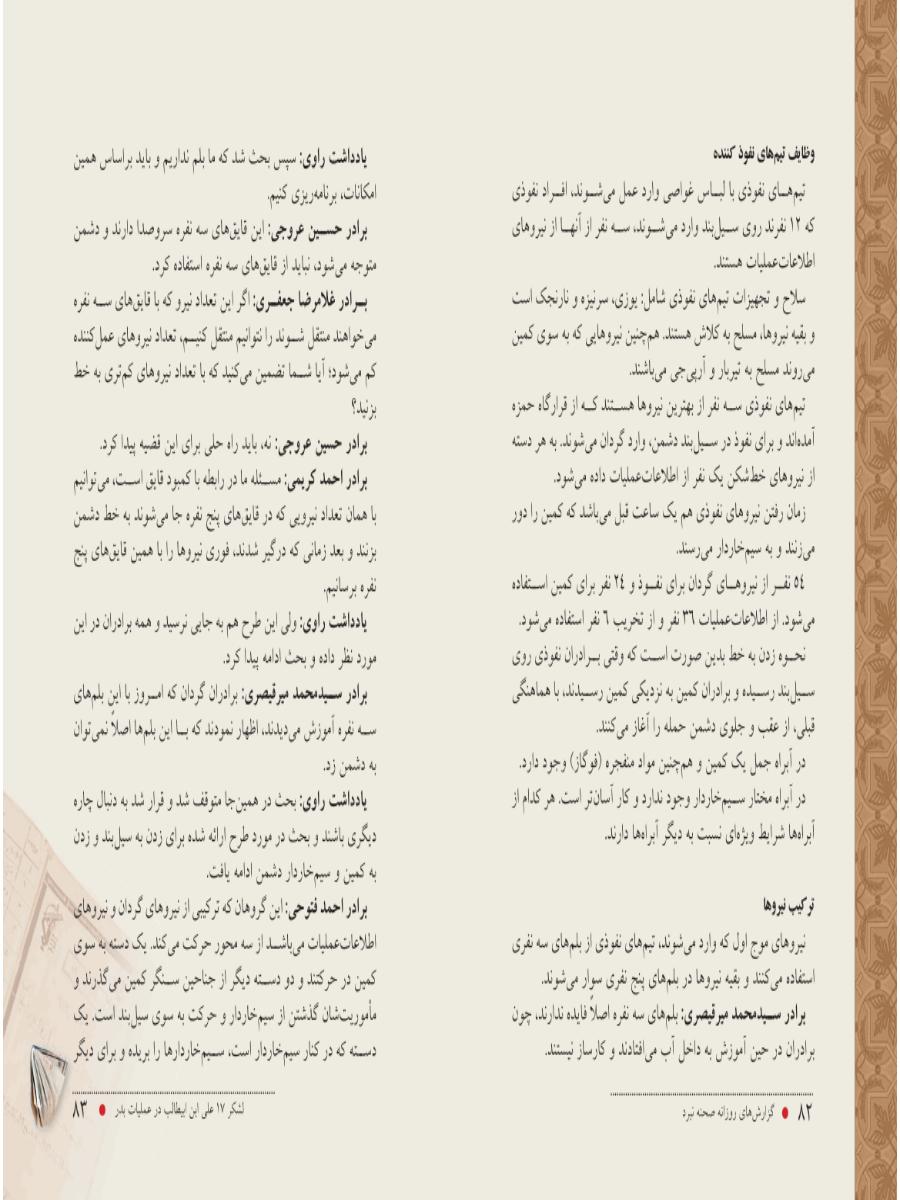 وظایف تیم‌های نفوذ کننده
تیم‌های نفوذی با لباس غواصی وارد عمل می‌شوند، افراد نفوذی
که ۱۲ نفرند روی سیل‌بند وارد می‌شوند، سه نفر از آنها از نیروهای
اطلاعات‌عملیات هستند.
سلاح و تجهیزات تیم‌های نفوذی شامل: یوزی، سرنیزه و نارنجک است
و بقیه نیروها، مسلح به کلاش هستند. هم‌چنین نیروهایی که به سوی کمین
می‌روند مسلح به تیربار و آرپی‌جی می‌باشند.
تیم‌های نفوذی سه نفر از بهترین نیروها هستند که از قرارگاه حمزه
آمده‌اند و برای نفوذ در سیل‌بند دشمن، وارد گردان می‌شوند. به هر دسته
از نیروهای خط‌شکن یک نفر از اطلاعات‌عملیات داده می‌شود.
زمان رفتن نیروهای نفوذی هم یک ساعت قبل می‌باشد که کمین را دور
می‌زنند و به سیم‌خاردار می‌رسند.
۵٤ نفر از نیروهای گردان برای نفوذ و ۲٤ نفر برای کمین استفاده
می‌شود. از اطلاعات‌عملیات ۳٦ نفر و از تخریب ٦ نفر استفاده می‌شود.
نحوه زدن به خط بدین صورت است که وقتی برادران نفوذی روی
سیل‌بند رسیده و برادران کمین به نزدیکی کمین رسیدند، با هماهنگی
قبلی، از عقب و جلوی دشمن حمله را آغاز می‌کنند.
در آبراه جمل یک کمین و هم‌چنین مواد منفجره (فوگاز) وجود دارد.
در آبراه مختار سیم‌خاردار وجود ندارد و کار آسان‌تر است. هر کدام از
آبراه‌ها شرایط ویژه‌ای نسبت به دیگر آبراه‌ها دارند.
ترکیب نیروها
نیروهای موج اول که وارد می‌شوند، تیم‌های نفوذی از بلم‌های سه نفری
استفاده می‌کنند و بقیه نیروها در بلم‌های پنج نفری سوار می‌شوند.
برادر سیدمحمد میرقیصری: بلم‌های سه نفره اصلاً فایده ندارند، چون
برادران در حین آموزش به داخل آب می‌افتادند و کارساز نیستند.
۸۲ ● گزارش‌های روزانه صحنه نبرد
یادداشت راوی: سپس بحث شد که ما بلم نداریم و باید براساس همین
امکانات، برنامه‌ریزی کنیم.
برادر حسین عروجی: این قایق‌های سه نفره سروصدا دارند و دشمن
متوجه می‌شود، نباید از قایق‌های سه نفره استفاده کرد.
برادر غلامرضا جعفری: اگر این تعداد نیرو که با قایق‌های سه نفره
می‌خواهند منتقل شوند را نتوانیم منتقل کنیم، تعداد نیروهای عمل‌کننده
کم می‌شود؛ آیا شما تضمین می‌کنید که با تعداد نیروهای کم‌تری به خط
بزنید؟
برادر حسین عروجی: نه، باید راه حلی برای این قضیه پیدا کرد.
برادر احمد کریمی: مسئله ما در رابطه با کمبود قایق است، می‌توانیم
با همان تعداد نیرویی که در قایق‌های پنج نفره جا می‌شوند به خط دشمن
بزنند و بعد زمانی که درگیر شدند، فوری نیروها را با همین قایق‌های پنج
نفره برسانیم.
یادداشت راوی: ولی این طرح هم به جایی نرسید و همه برادران در این
مورد نظر داده و بحث ادامه پیدا کرد.
برادر سیدمحمد میرقیصری: برادران گردان که امروز با این بلم‌های
سه نفره آموزش می‌دیدند، اظهار نمودند که با این بلم‌ها اصلاً نمی‌توان
به دشمن زد.
یادداشت راوی: بحث در همین‌جا متوقف شد و قرار شد به دنبال چاره
دیگری باشند و بحث در مورد طرح ارائه شده برای زدن به سیل‌بند و زدن
به کمین و سیم‌خاردار دشمن ادامه یافت.
برادر احمد فتوحی: این گروهان که ترکیبی از نیروهای گردان و نیروهای
اطلاعات‌عملیات می‌باشد از سه محور حرکت می‌کند. یک دسته به سوی
کمین در حرکتند و دو دسته دیگر از جناحین سنگر کمین می‌گذرند و
مأموریت‌شان گذشتن از سیم‌خاردار و حرکت به سوی سیل‌بند است. یک
دسته که در کنار سیم‌خاردار است، سیم‌خاردارها را بریده و برای دیگر
لشکر ۱۷ علی ابن ابیطالب در عملیات بدر ● ۸۳